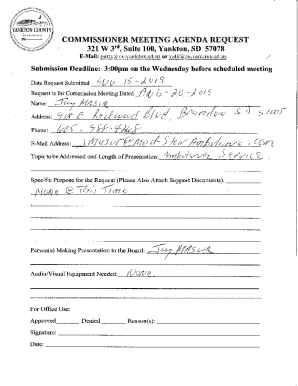 YANKTON COUNTY
COMMISSIONER MEETING AGENDA REQUEST
321 W 3rd, Suite 100, Yankton, SD 57078
E-Mail: patty@co.yankton.sd.us or
Submission Deadline: 3:00pm on the Wednesday before scheduled meeting
Date Request Submitted Aug 15-2019
Request is for Commission Meeting Dated Aug-20-2019
Name: Jay Masur
Address: 918 E. Redwood Blvd, Brandon SD 57005
Phone: 605-
E-Mail Address: jmasur@med-starambulance.com
Topic to be Addressed and Length of Presentation: Ambulance Service
Specific Purpose for the Request (Please Also Attach Support Documents):
None @ This Time
Person(s) Making Presentation to the Board: Jay Masur
Audio/Visual Equipment Needed: None
For Office Use:
Approved Denied Reason(s):
Signature:
Date: